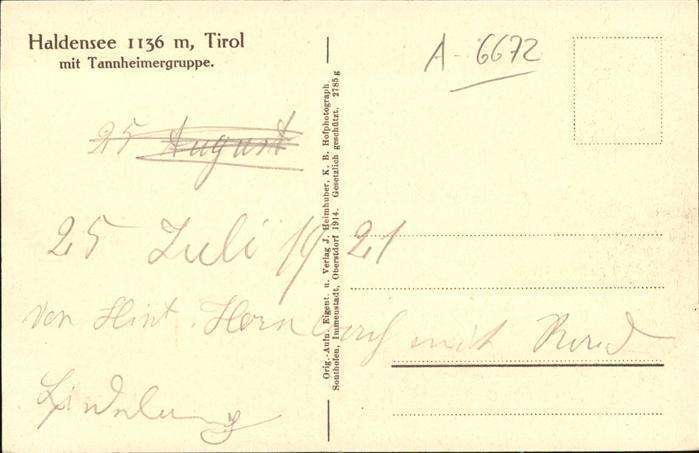 Haldensee 1136 m, Tirol
mit Tannheimergruppe.
A-6672
25 August
25 Juli 1921
von Hint. Hornbach mit
Orig.-Aufn. Eigent. u. Verlag J. Heimhuber, K. B. Hofphotograph
Sonthofen, Immenstadt, Oberstdorf 1914. Gesetzlich geschützt. 2785g